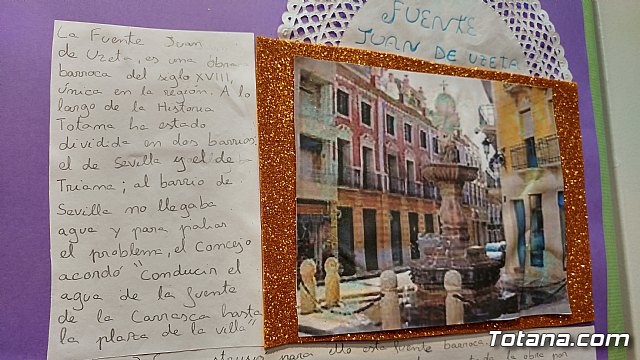 FUENTE
JUAN DE UZETA
La Fuente Juan
de Uzeta, es una obra
barroca del siglo XVIII,
única en la región. A lo
largo de la Historia
Totana ha estado
dividida en dos barrios
el de Sevilla y el de
Triana; al barrio de
Sevilla no llegaba
agua y para paliar
el problema, el Concejo
acordó "Conducir el
agua de la fuente
de la Carrasca hasta
la plaza de la villa"
para ello esta fuente barroca.
toda la obra por
Totana.com
http://www.totana.com